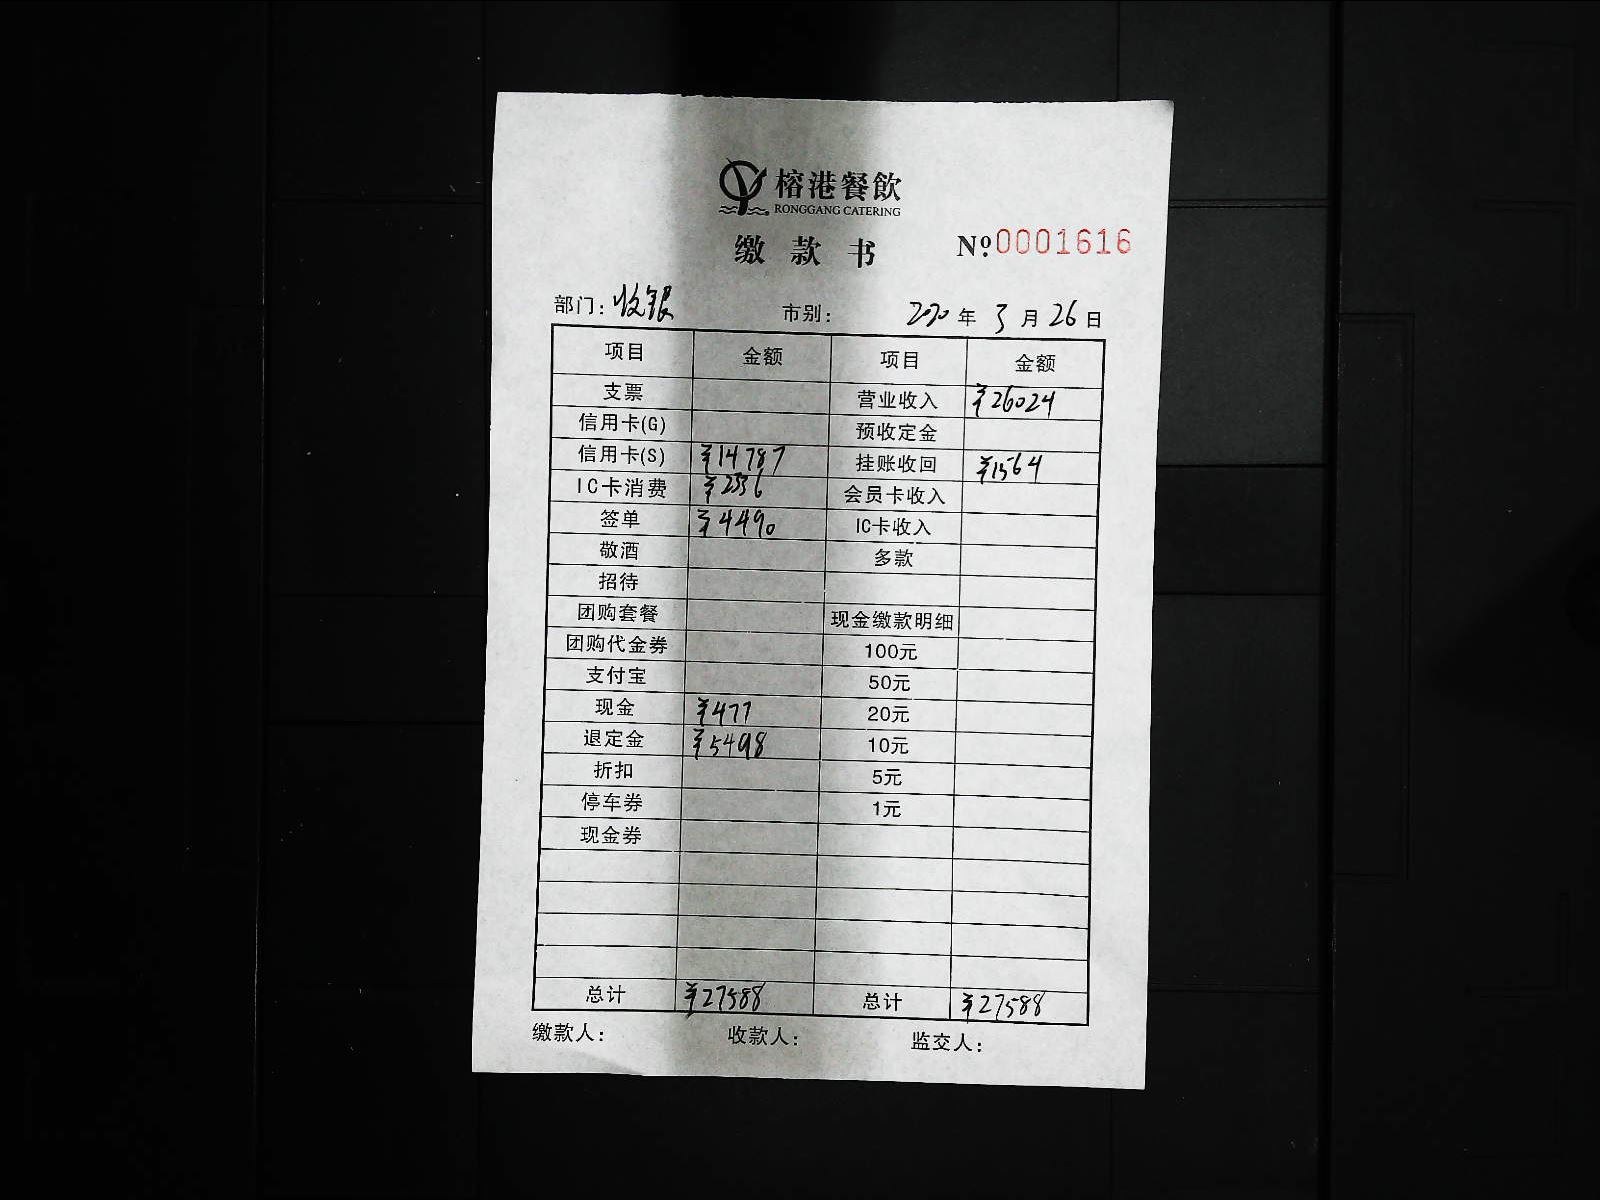 榕港餐飲
RONGGANG CATERING
缴款书 Nº 0001616
部门：收银 市别： 2020年 3月26日
项目 金额 项目 金额
支票 营业收入 ¥26024
信用卡(G) 预收定金
信用卡(S) ¥14787 挂账收回 ¥1564
IC卡消费 ¥2336 会员卡收入
签单 ¥4490 IC卡收入
敬酒 多款
招待
团购套餐 现金缴款明细
团购代金券 100元
支付宝 50元
现金 ¥477 20元
退定金 ¥5498 10元
折扣 5元
停车券 1元
现金券
总计 ¥27588 总计 ¥27588
缴款人： 收款人： 监交人：